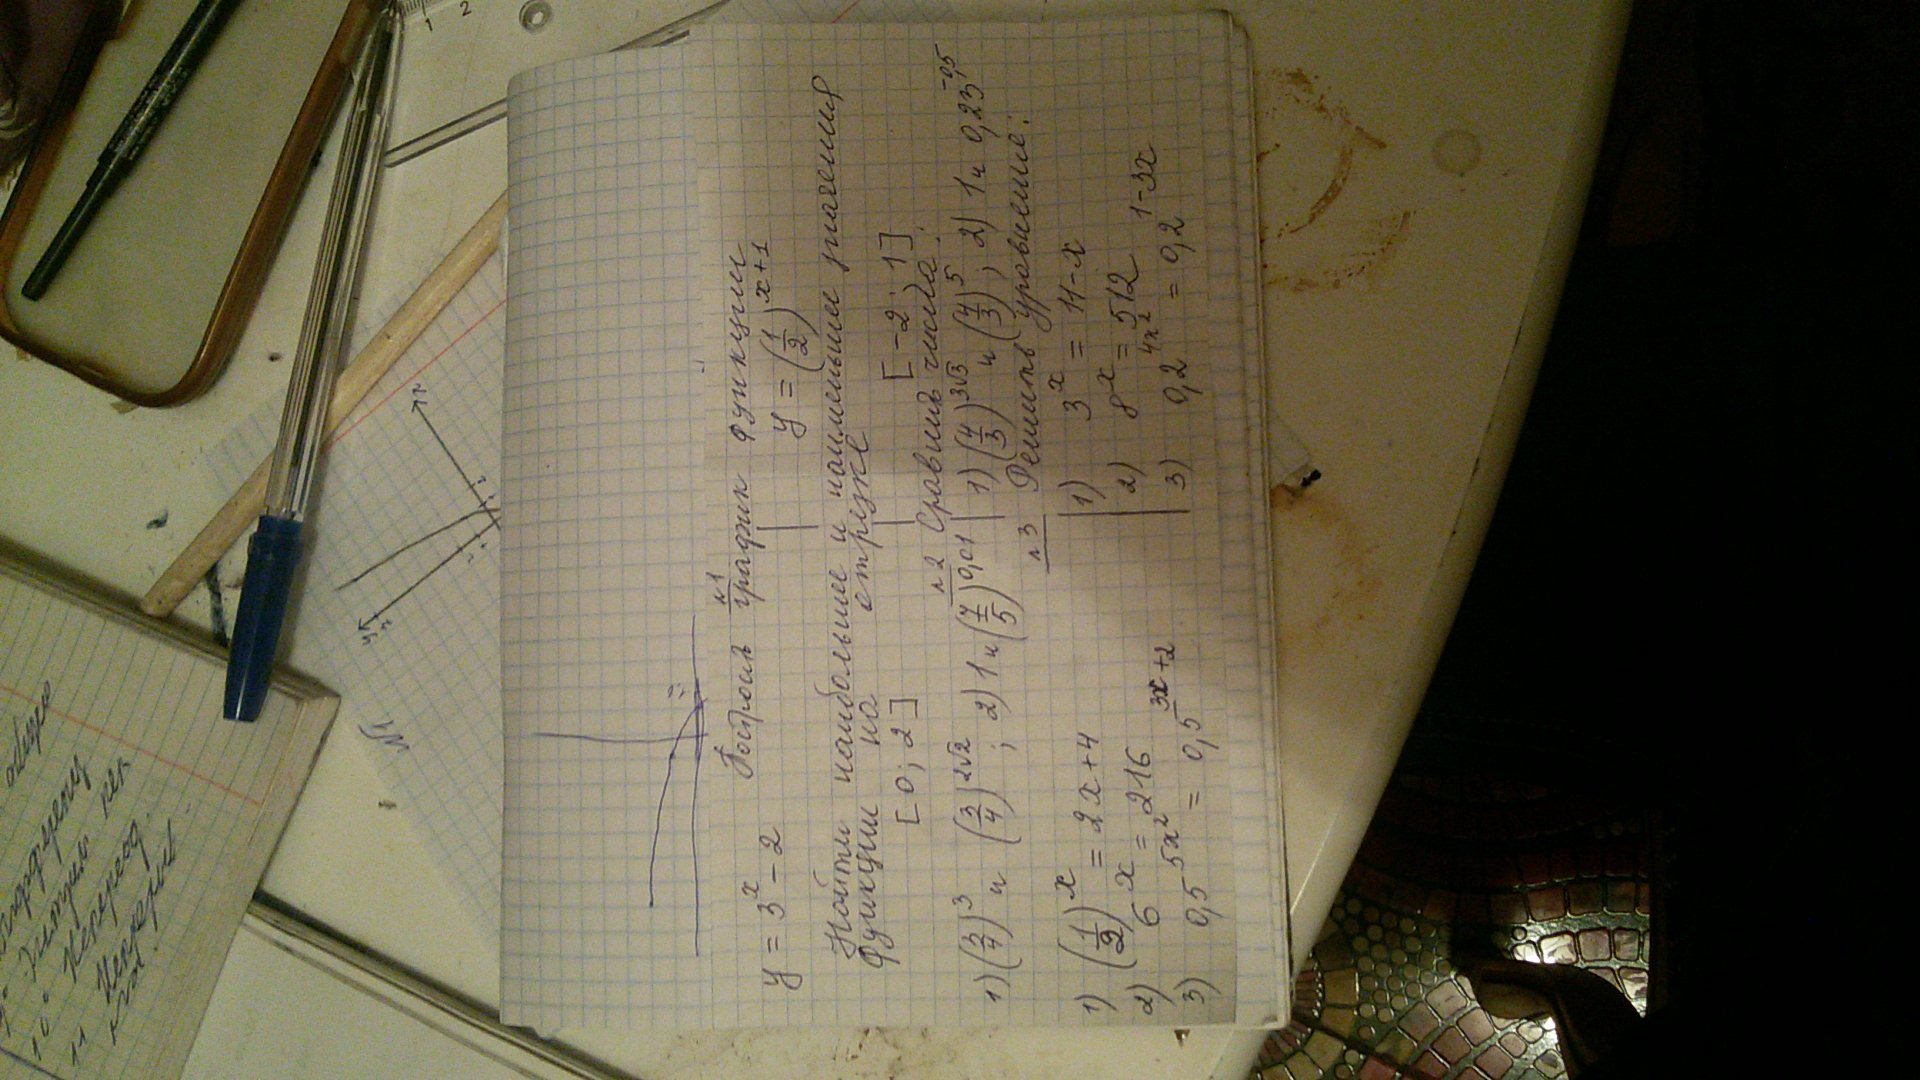 №1
Построить график функции
y = 3^x - 2 | y = (1/2)^(x+1)
Найти наибольшее и наименьшее значения
функции на отрезке
[0; 2] | [-2; 1]
№2 Сравнить числа:
1) (3/4)^3 и (3/4)^(2√2); 2) 1 и (7/5)^0,01 | 1) (4/3)^(3√3) и (4/3)^5; 2) 1 и 0,23^(-0,5)
№3 Решить уравнение:
1) (1/2)^x = 2x+4 | 1) 3^x = 11-x
2) 6^x = 216 | 2) 8^x = 512
3) 0,5^(5x²) = 0,5^(3x+2) | 3) 0,2^(4x²) = 0,2^(1-3x)
1 2